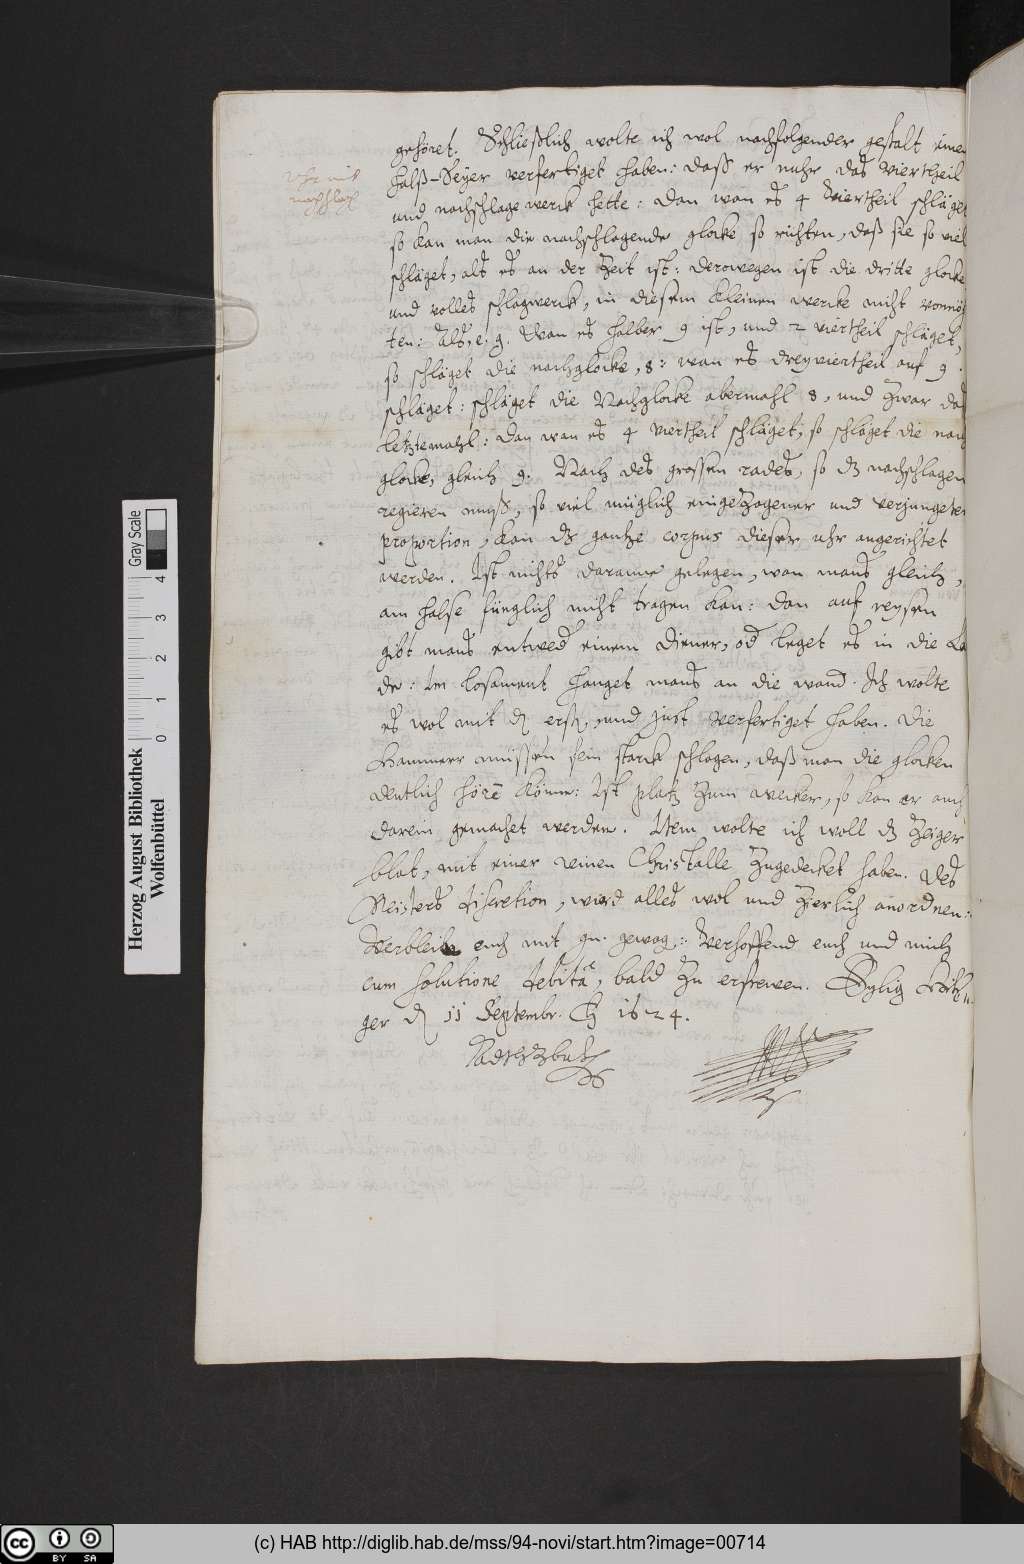 gehöret. Schließlich wolte ich wol nachfolgender gestalt einen
Uhr mit
nachschlag
halß-Seyer verfertiget haben: daß er nuhr das Viertheil
und nachschlage werck hette: dan wan es 4 Viertheil schläget
so kan man die nachschlagende glocke so richten, daß sie so viel
schläget, als es an der Zeit ist: derowegen ist die dritte glocke
und volles schlagwerck, in diesem kleinen wercke nicht vonnö-
ten: Als, e. g. Wan es halber 9 ist, und 2 viertheil schläget,
so schläget die nachglocke, 8: wan es dreyviertheil auf 9
schläget: schläget die Nachglocke abermahl 8, und zwar das
letztemahl: dan wan es 4 viertheil schläget, so schläget die nach
glocke, gleich 9. Nach des grossen rades, so dz nachschlagen
regieren muß, so viel müglich eingezogener und verjungeter
proportion, kan dz gantze corpus dieser uhr angerichtet
werden. Ist nichts daranne gelegen, wan mans gleich,
am halse füeglich nicht tragen kan: dan auf reysen
gibt mans entwed einem diener, od leget es in die La
de: im losament hanget mans an die wand. Ich wolte
es wol mit dz erst, und just verfertiget haben. Die
Hammerr müssen fein starck schlagen, daß man die glocken
deutlich höre könne: Ist platz zum wecker, so kan er auch
darein gemachet werden. Item wolte ich woll dz Zeiger
blat, mit einer reinen Christalle zugedecket haben. Des
Meisters discretion, wird alles wol und zierlich anordnen:
Verbleibe euch mit gn. gewog: Verhoffend euch und mich
cum solutione debita, bald zu erfrewen. Eylig Hitz
ger d 11 Septembr. 1624.
Herzog August Bibliothek
Wolfenbüttel
Gray Scale
0 1 2 3 4
(c) HAB http://diglib.hab.de/mss/94-novi/start.htm?image=00714
cc BY SA